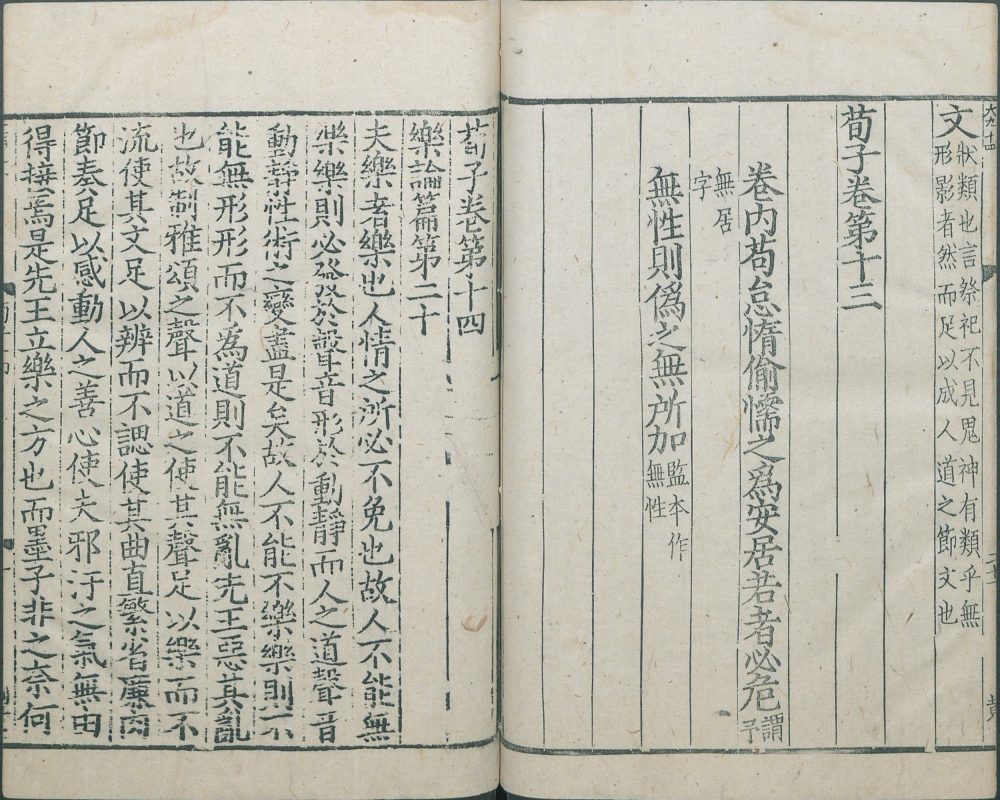 大六十四
文狀類也言祭祀不見鬼神有類乎無
形影者然而足以成人道之節文也
荀子卷第十三
卷内苟怠惰偷懦之爲安居若者必危謂子
無居
字
無性則僞之無所加監本作
無性
荀子卷第十四
樂論篇第二十
夫樂者樂也人情之所必不免也故人不能無
樂樂則必發於聲音形於動靜而人之道聲音
動靜性術之變盡是矣故人不能不樂樂則不
能無形形而不為道則不能無亂先王惡其亂
也故制雅頌之聲以道之使其聲足以樂而不
流使其文足以辨而不諰使其曲直繁省廉肉
節奏足以感動人之善心使夫邪汙之氣無由
得接焉是先王立樂之方也而墨子非之奈何